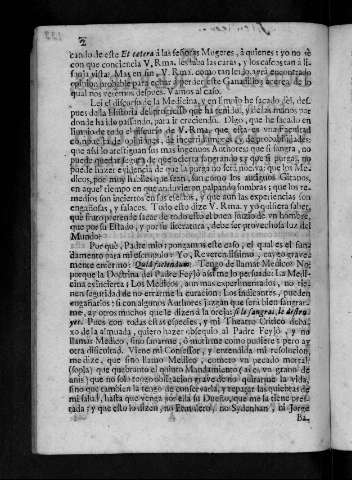 2
cando de este Et cetera à las señoras Mugeres, à quienes: yo no sè
con que conciencia V. Rma. les laba las caras, y los cascos tan à li-
sonja vista. Mas en fin, V. Rma. como tan leido, avrà encontrado
opinion probable para echar à perder este Ganadillo; acerca de lo
qual nos verèmos despues. Vamos al caso.
Lei el discurso de la Medicina, y en limpio he sacado, des-
pues de la Historia del progresso que ha tenido, y de las manos por
donde ha ido passando, para ir creciendo. Digo, que he sacado en
limpio de todo el discurso de V. Rma, que esta es una facultad
compuesta de opiniones, de incertidumbres, y de probabilidades:
que assi lo atestiguan los mas ingenuos Authores: que si sangra, no
puede quedar segura de que acierta sangrando: y que si purga, no
puede hazer evidencia de que la purga no serà nociva: que los Me-
dicos, por muy habiles que sean, son como los antiguos Gitanos,
en aquel tiempo en que anduvieron palpando sombras; que los re-
medios son inciertos en sus efectos, y que aun las experiencias son
engañosas, y falaces. Todo esto dize V. Rma. y yo quisiera saber,
què fruto pretende sacar de todo esto el buen juizio de un hombre,
que por su Estado, y por su literatura, debe ser provechoso à todo el
Mundo?
Por què, Padre mio: pongamos este caso, el qual es el fun-
damento para mi escrupulo: Yo, Reverendissimo, estoy grave-
mente enfermo: Quid faciendum? Tengo de llamar Medico? No,
porque la Doctrina del Padre Feyjò assi me lo persuade: La Medi-
cina es incierta; Los Medicos, aun mas experimentados, no tie-
nen seguridad de no errarme la curacion: Los indicantes, pueden
engañarlos: si con algunos Authores juzgan que serà bien sangrar-
me, ay otros muchos que le dizen à la oreja: si lo sangras, lo destru-
yes. Pues con todas estas especies, y mi Theatro Critico deba-
xo de la almuada, quiero hazer obsequio al Padre Feyjò, y no
llamar Medico, sino sanarme, ò morirme como pudiere; pero ay
otra dificultad. Viene mi Confessor, y entendida mi resolucion,
me dize, que sino llamo Medico, cometo un pecado mortal
(sopla) que quebranto el quinto Mandamiento (ai es un grano de
anis) que no solo tengo obligacion grave de no quitarme la vida,
sino que tambien la tengo de conservarla, y reparar las quiebras de
mi salud, hasta que venga por ella su Dueño, que me la tiene pres-
tada; y que esto lo dizen, no Etmulero, no Sydenhan, ni Jorge
Ba-